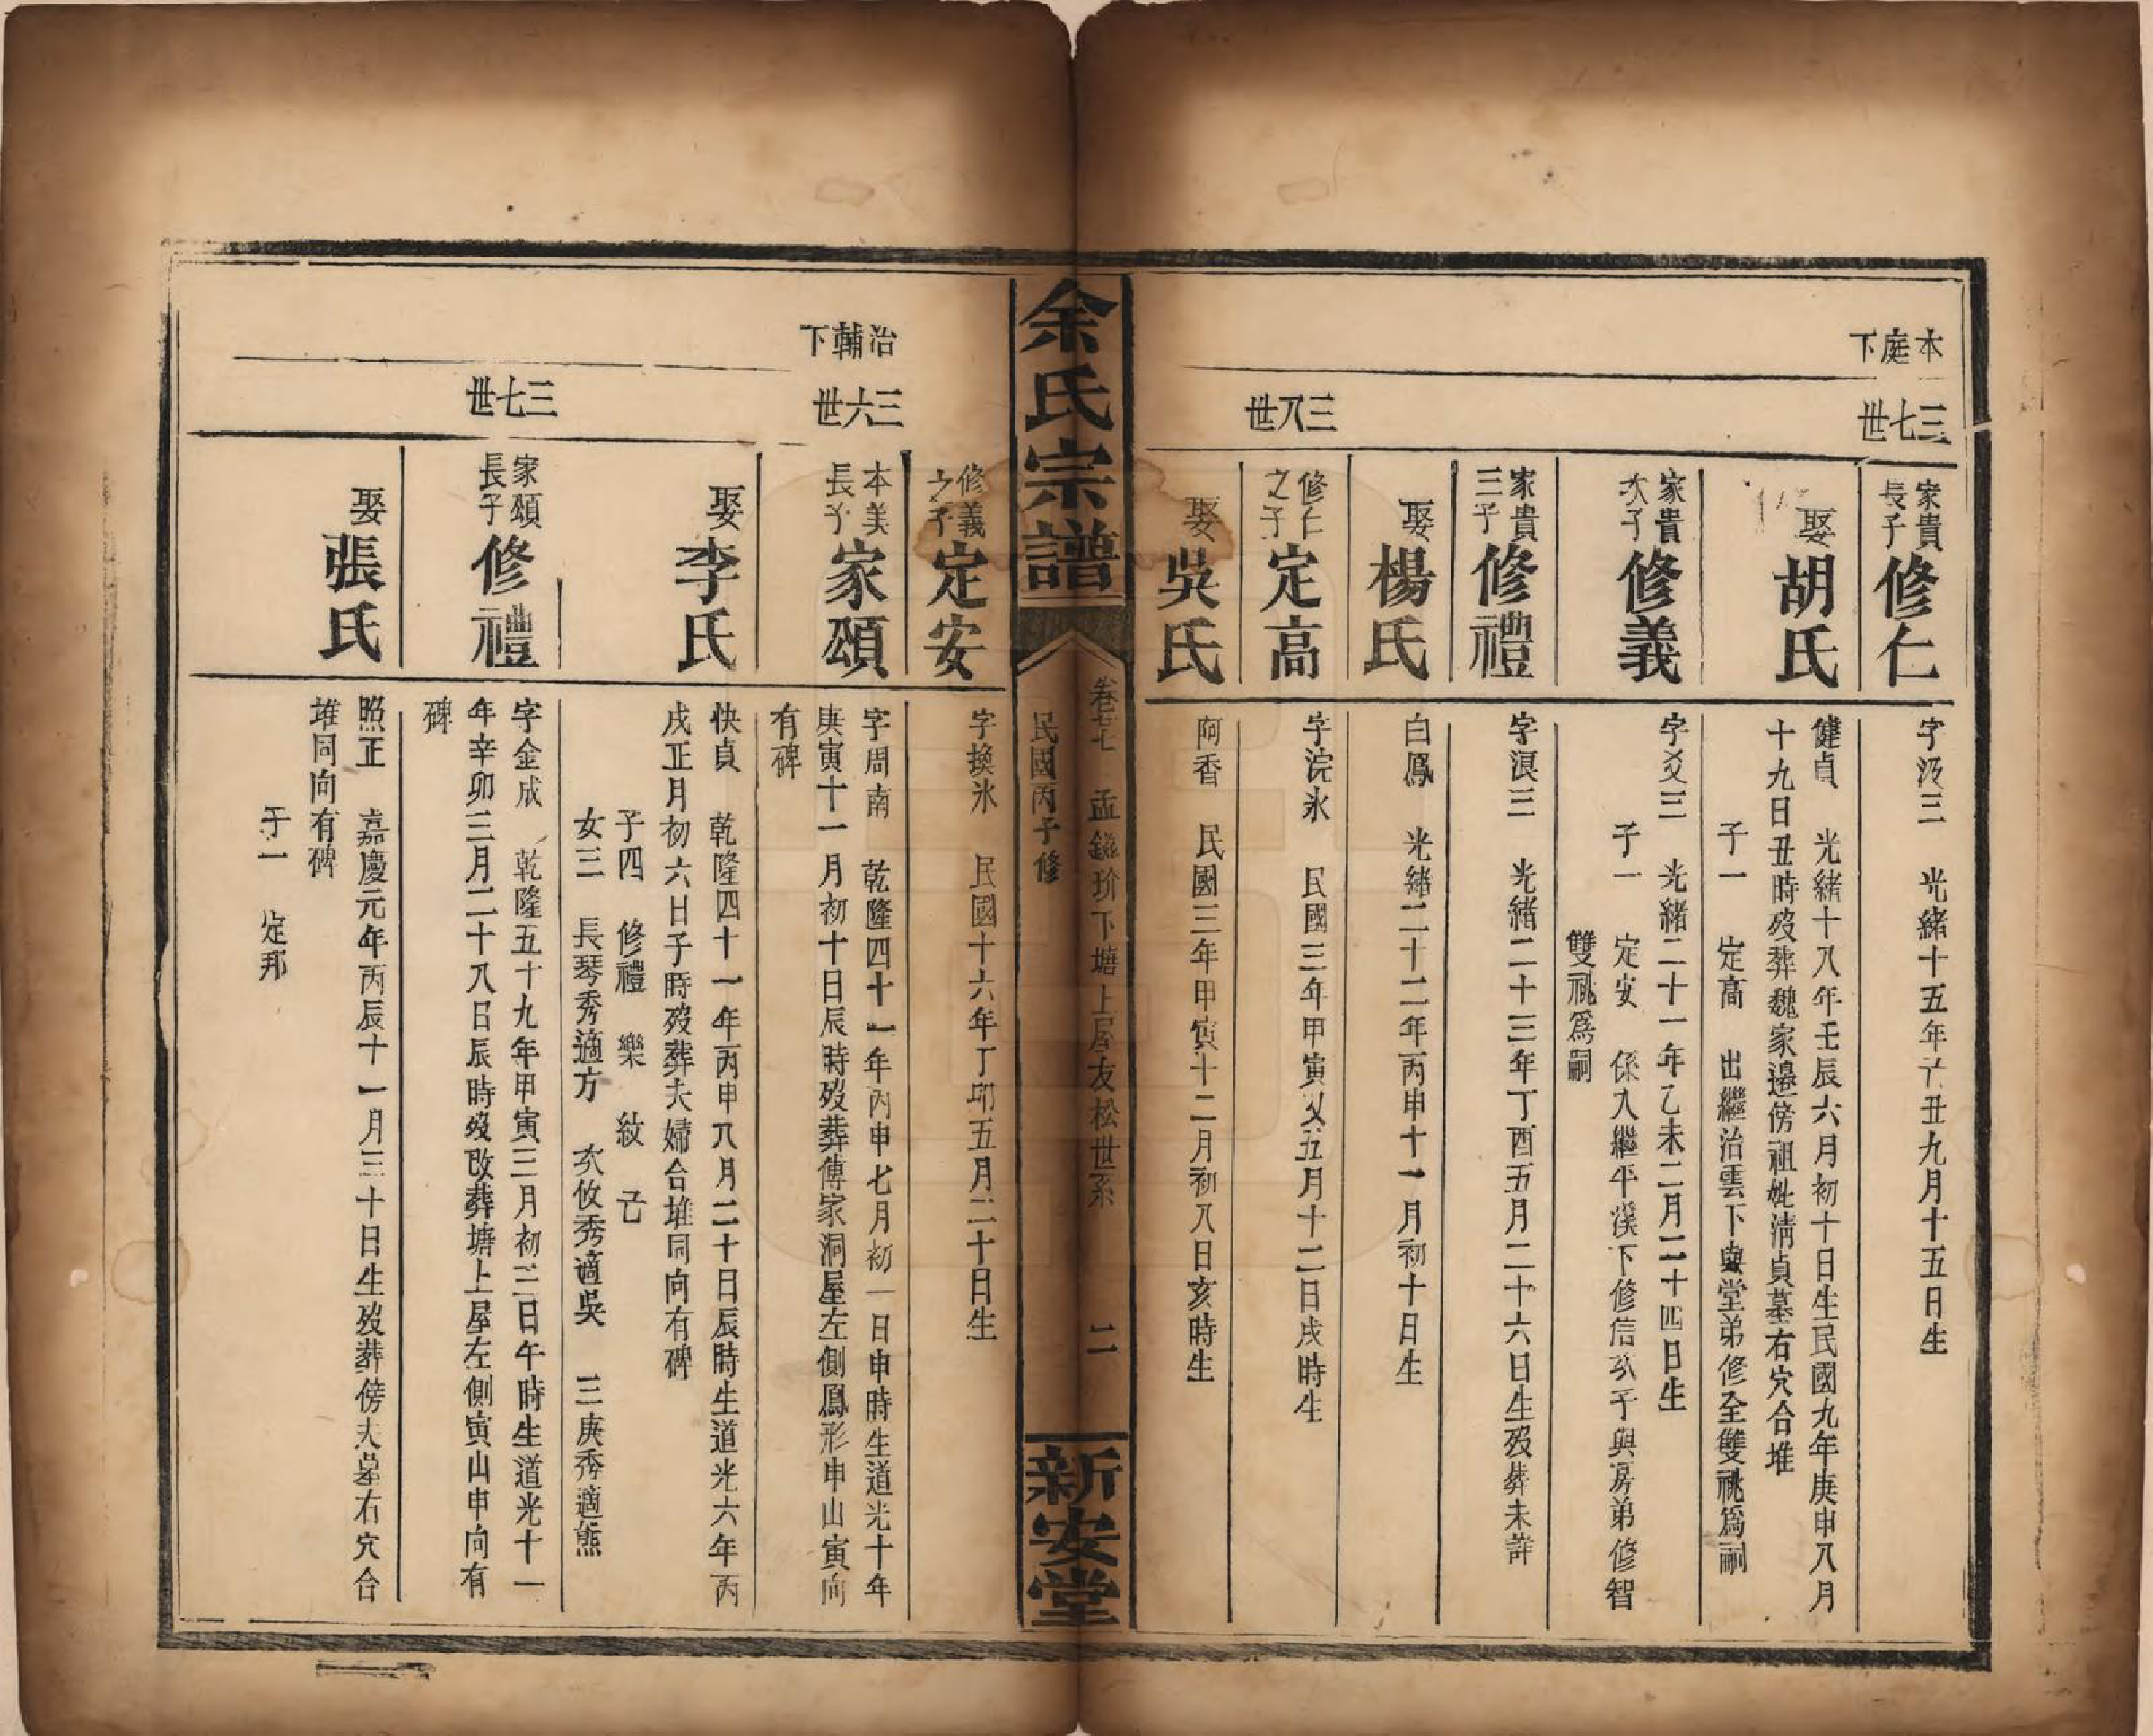 本庭下
三七世
家貴
長子
修仁
字汲三　光緒十五年己丑九月十五日生
娶
胡氏
健貞　光緒十八年壬辰六月初十日生民國九年庚申八月
十九日丑時歿葬魏家邊傍祖妣清貞墓右穴合堆
子一　定高　出繼治雲下與堂弟修全雙祧爲嗣
家貴
次子
修義
字爻三　光緒二十一年乙未二月二十四日生
子一　定安　係入繼平溪下修信次子與房弟修智
雙祧爲嗣
家貴
三子
修禮
字浪三　光緒二十三年丁酉五月二十六日生歿葬未詳
娶
楊氏
白鳳　光緒二十二年丙申十一月初十日生
三八世
修仁
之子
定高
字浣氷　民國三年甲寅又五月十二日戌時生
娶
吳氏
阿香　民國三年甲寅十二月初八日亥時生
余氏宗譜
卷七七　孟鎡玠下塘上屋友松世系　二
民國丙子修
新安堂
修義
之子
定安
字換氷　民國十六年丁卯五月二十日生
治輔下
三六世
本美
長子
家頌
字周南　乾隆四十一年丙申七月初一日申時生道光十年
庚寅十一月初十日辰時歿葬傅家洞屋左側鳳形申山寅向
有碑
娶
李氏
快貞　乾隆四十一年丙申八月二十日辰時生道光六年丙
戌正月初六日子時歿葬夫婦合堆同向有碑
子四　修禮　樂　敘　七
女三　長琴秀適方　次攸秀適吳　三庚秀適熊
三七世
家頌
長子
修禮
字金成　乾隆五十九年甲寅三月初三日午時生道光十一
年辛卯三月二十八日辰時歿改葬塘上屋左側寅山申向有
碑
娶
張氏
照正　嘉慶元年丙辰十一月三十日生歿葬傍夫墓右穴合
堆同向有碑
子一　定邦